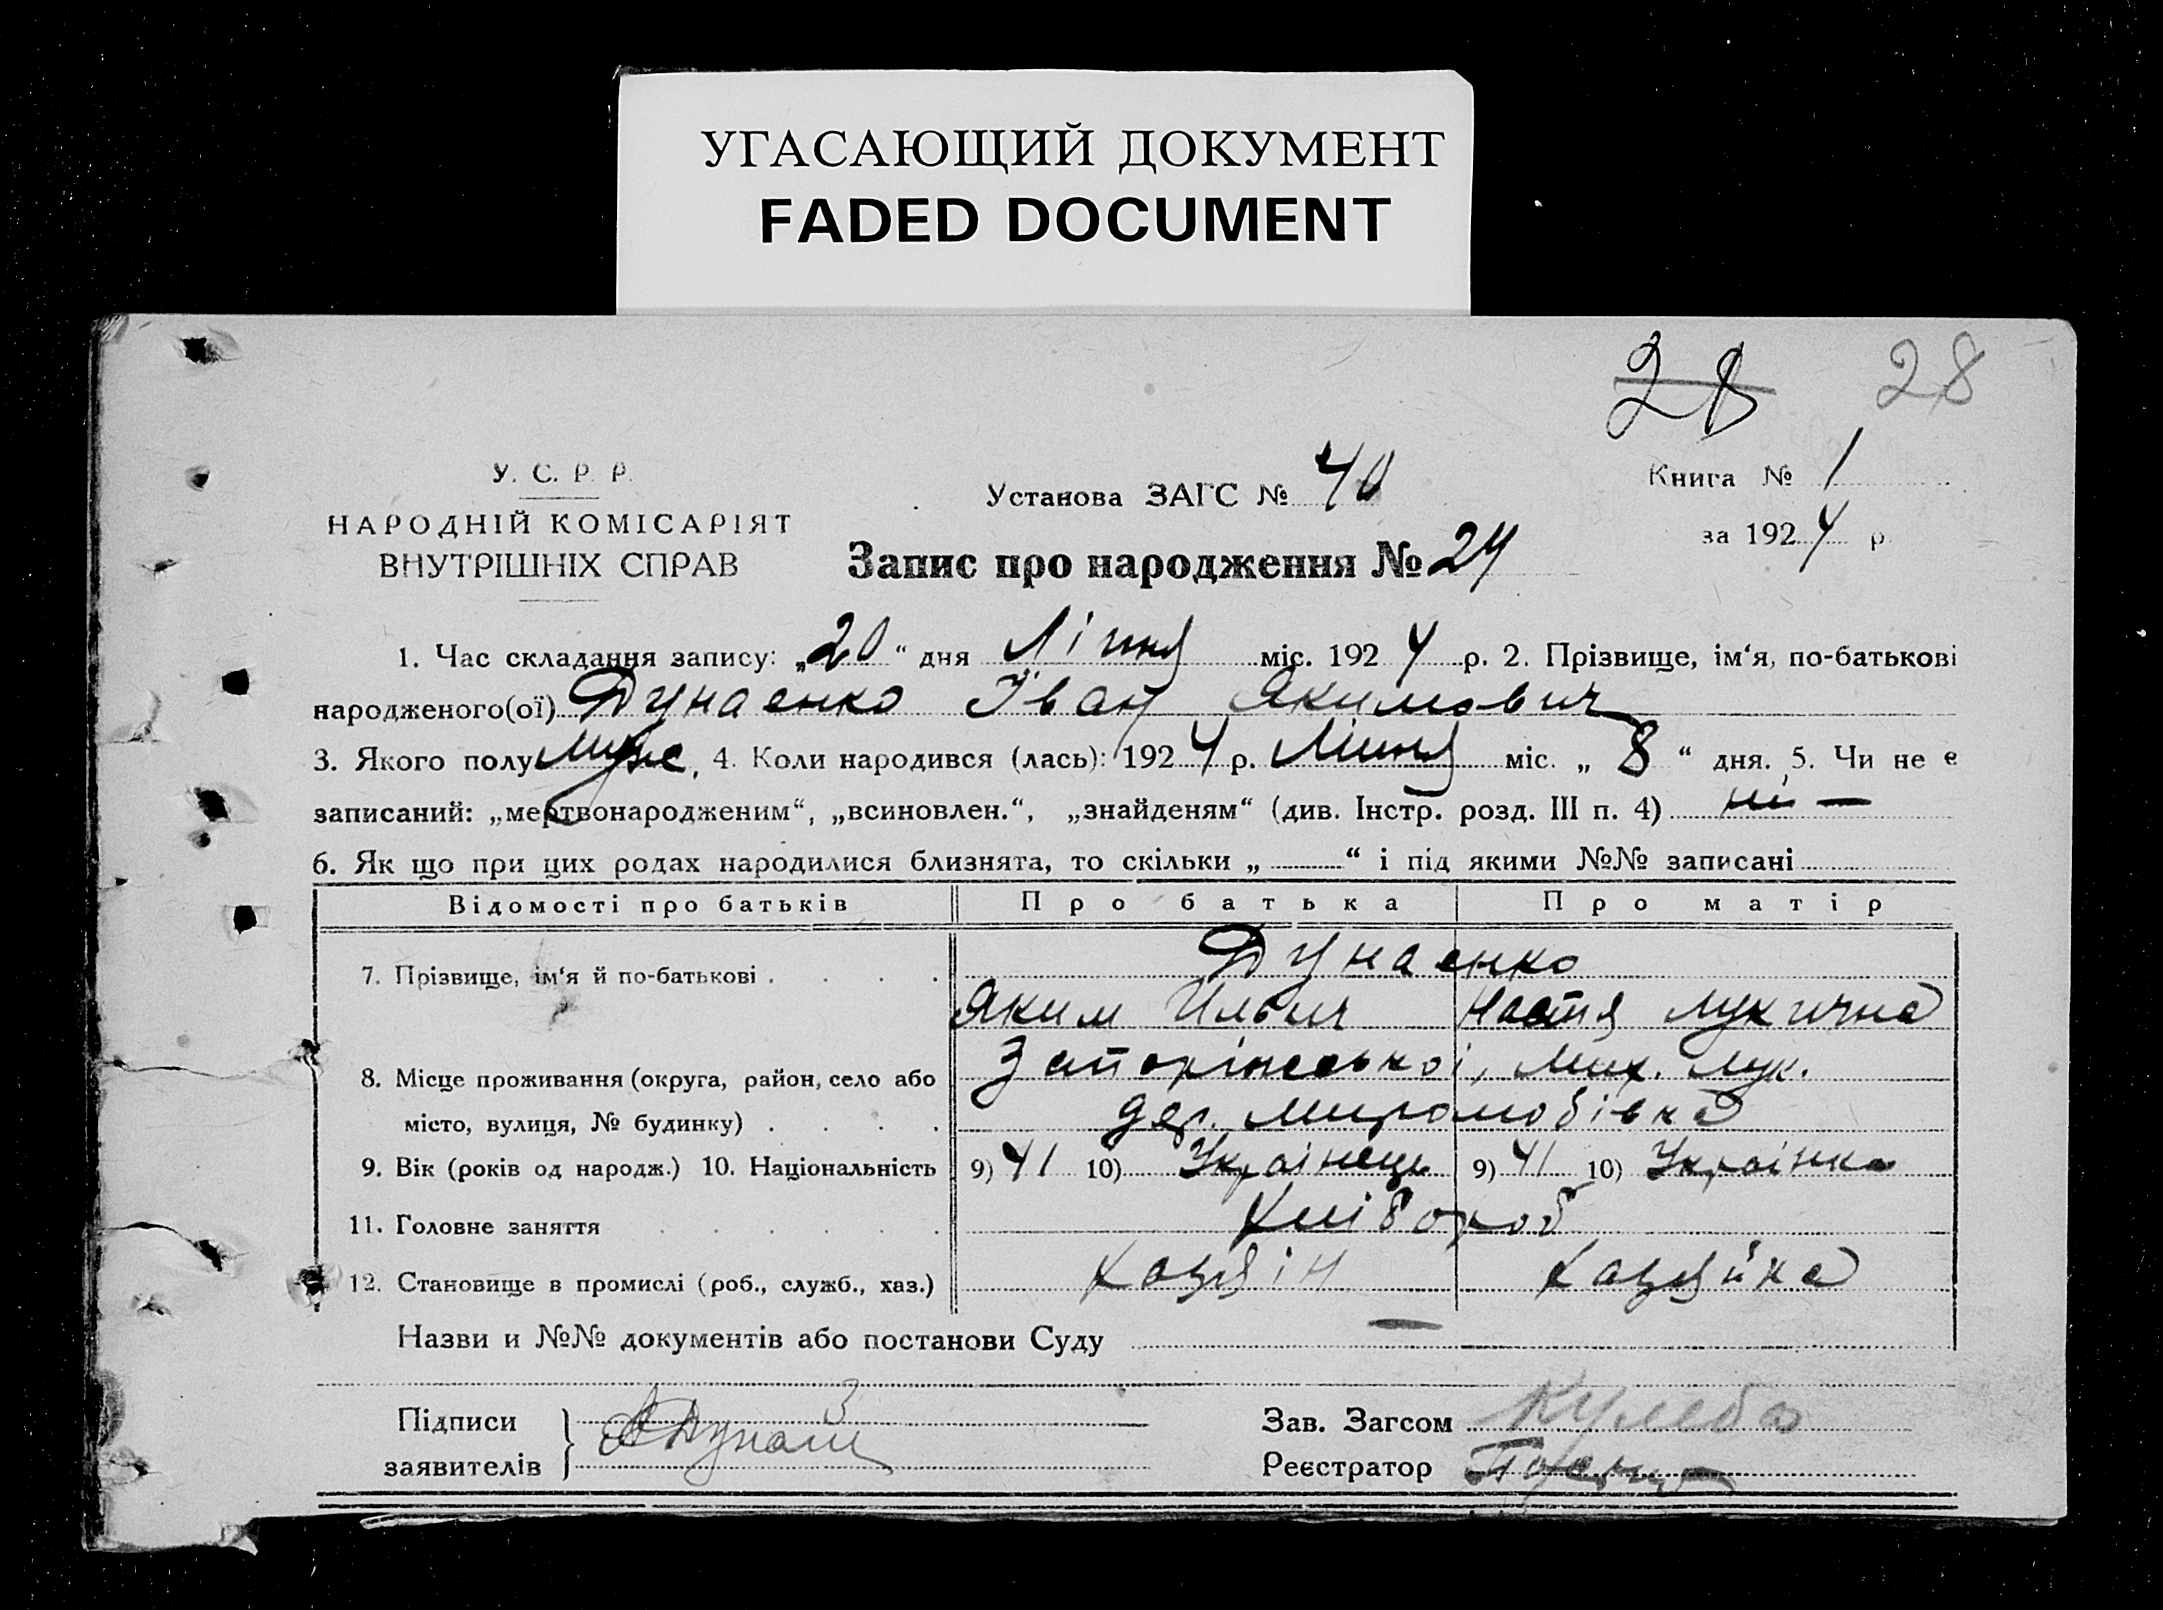 УГАСАЮЩИЙ ДОКУМЕНТ
FADED DOCUMENT
28 28
У. С. Р. Р.
НАРОДНІЙ КОМІСАРІЯТ
ВНУТРІШНІХ СПРАВ
Установа ЗАГС № 40
Запис про народження № 24
Книга № 1
за 1924 р
1. Час складання запису: „20“ дня Ліпня міс. 1924 р. 2. Прізвище, ім‘я, по-батькові
народженого(ої) Дунаенко Іван Якимович
3. Якого полу муже, 4. Коли народився (лась): 1924 р. Ліпня міс. „8“ дня. 5. Чи не е
записаний: „мертвонародженим“, „всиновлен.“, „знайденям“ (див. Інстр. розд. III п. 4) ні —
6. Як що при цих родах народилися близнята, то скільки „ “ і під якими №№ записані
Відомості про батьків Про батька Про матір
7. Прізвище, ім‘я й по-батькові . . . . Дунаенко
Яким Ильич Настя Лукична
8. Місце проживання (округа, район, село або Запоріжської, Мих. Лук.
місто, вулиця, № будинку) . . . . дер.
9. Вік (років од народж.) 10. Національність 9) 41 10) Українець 9) 41 10) Українка
11. Головне заняття . . . . . . Хлібороб
12. Становище в промислі (роб., служб., хаз.) Хазяін Хазяйка
Назви и №№ документів або постанови Суду —
Підписи
заявителів
Зав. Загсом Кулеба
Реєстратор